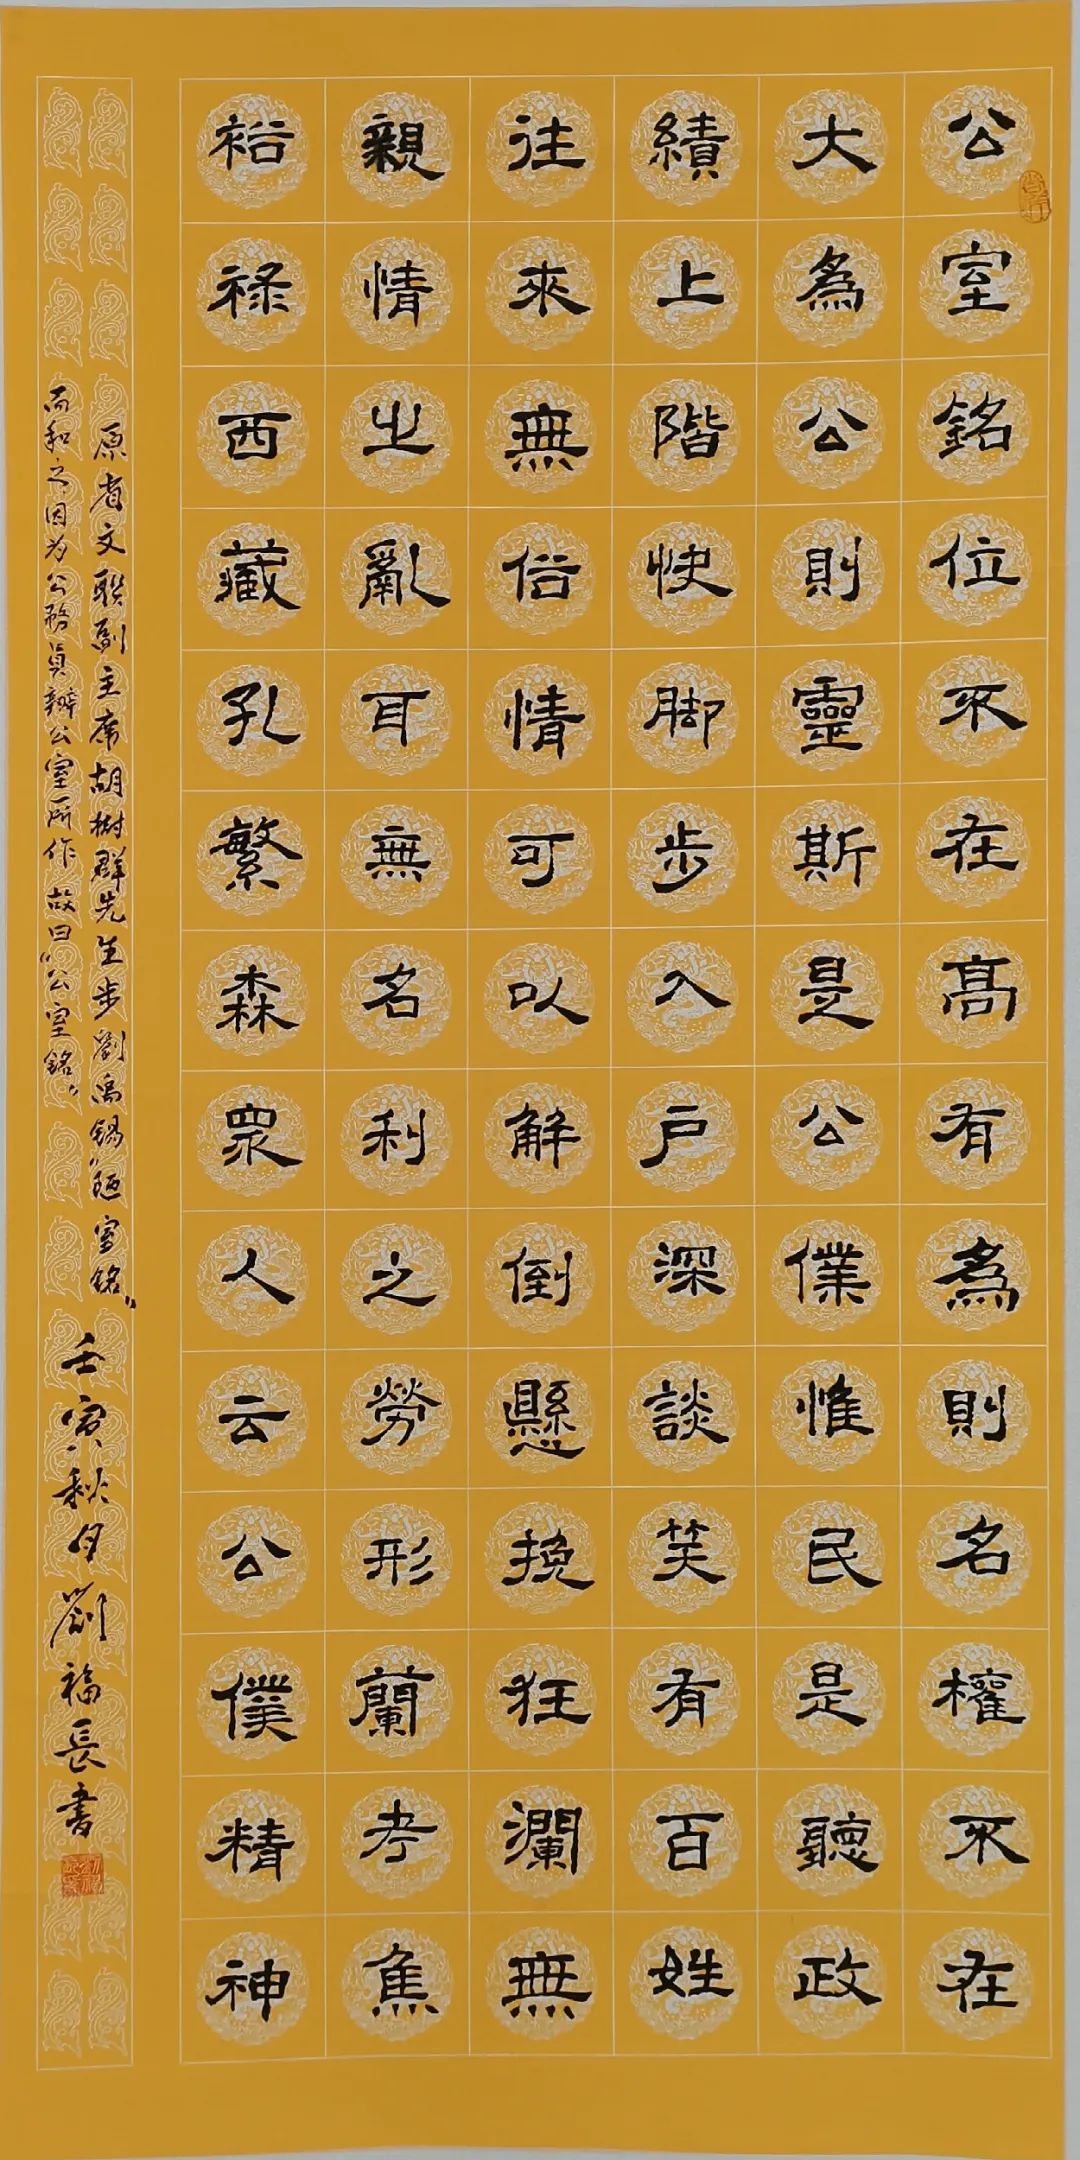 公室銘位不在高有為則名權不在
大為公則靈斯是公僕惟民是聽政
績上階快腳步入戶深談笑有百姓
往來無俗情可以解倒懸挽狂瀾無
親情之亂耳無名利之勞形蘭考焦
裕祿西藏孔繁森眾人云公僕精神
原省文聯副主席胡樹群先生步劉禹錫"陋室銘"
而和之因为公務員辦公室所作故曰"公室銘"
壬寅秋月劉福長書